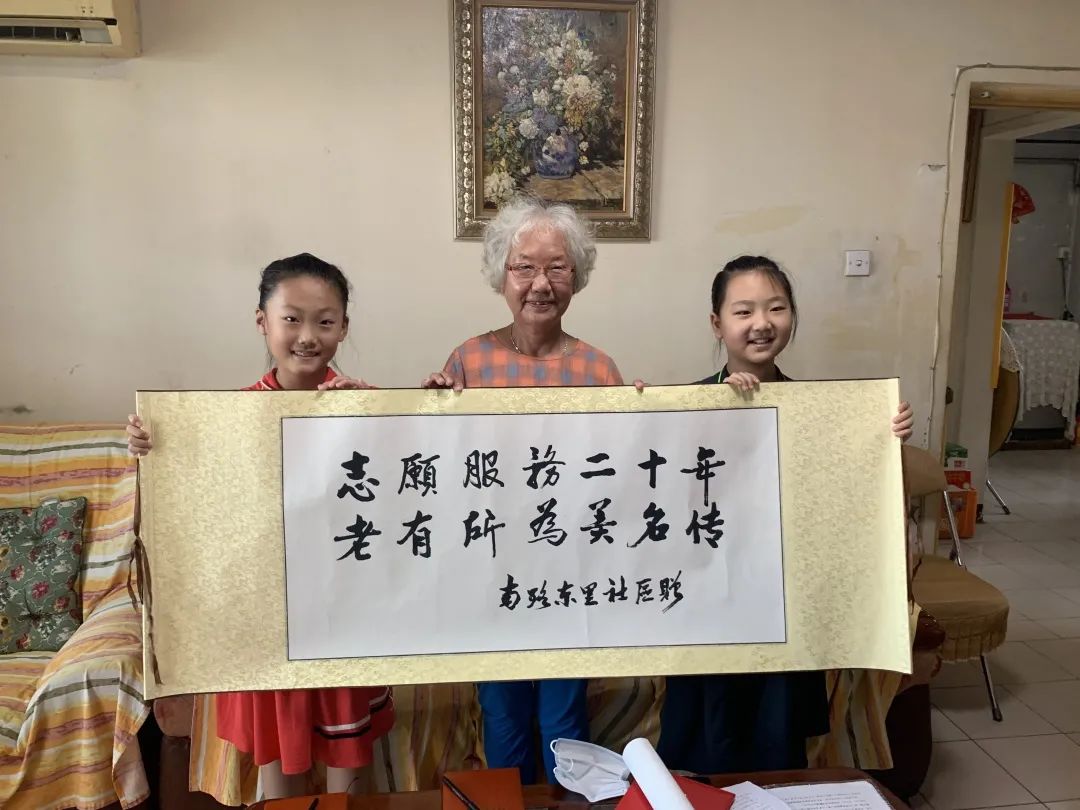 志願服務二十年
老有所為美名传
南路东里社区贈